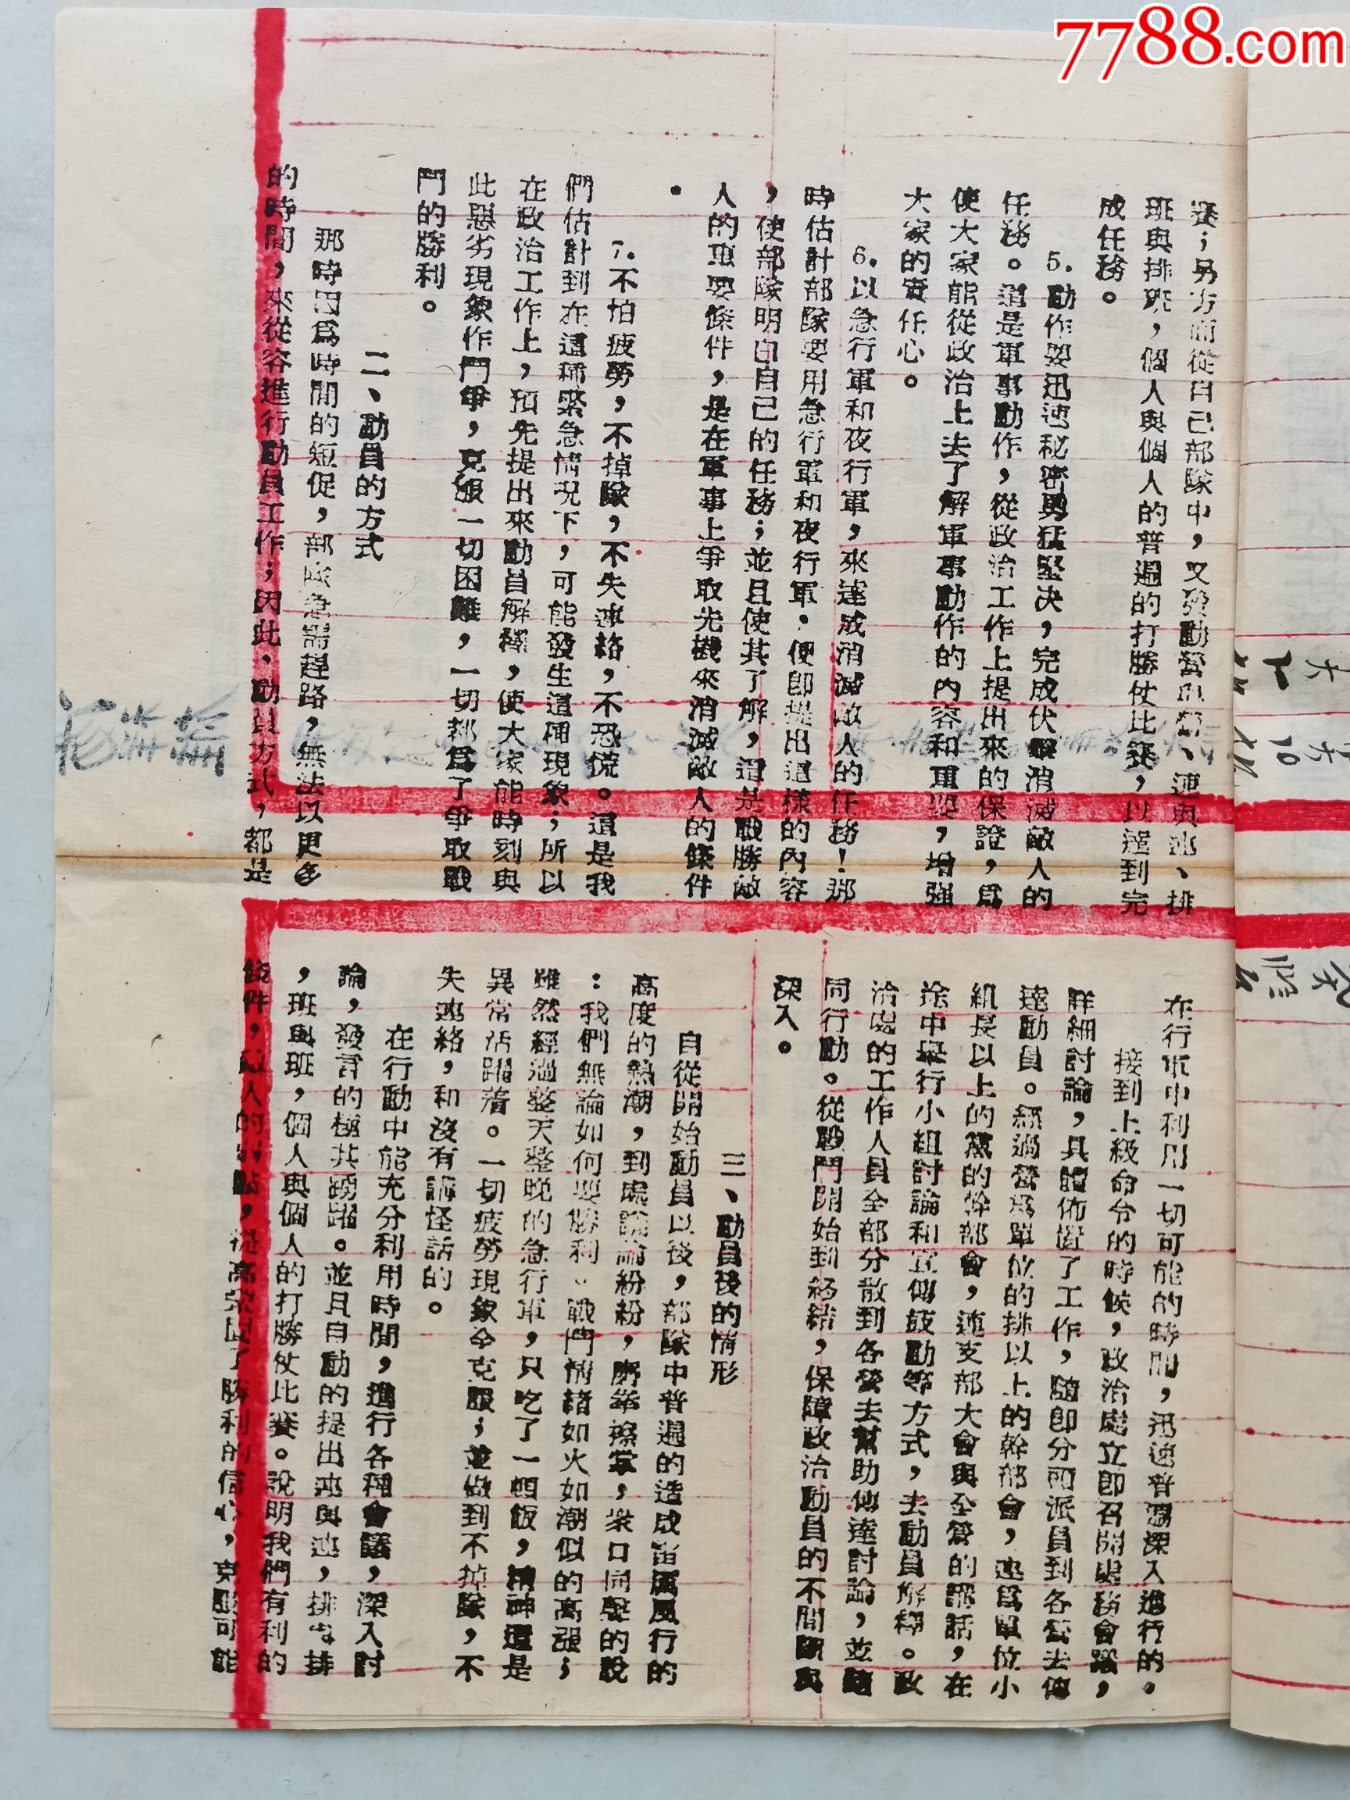 7788.com
賽；另方面從自己部隊中，又發動營與營、連與連、排
班與排班，個人與個人的普遍的打勝仗比賽，以達到完
成任務。
5.動作要迅速秘密勇猛堅决，完成伏擊消滅敵人的
任務。這是軍事動作，從政治工作上提出來的保證，爲
使大家能從政治上去了解軍事動作的內容和重要，增強
大家的責任心。
6.以急行軍和夜行軍，來達成消滅敵人的任務！那
時估計部隊要用急行軍和夜行軍，便即提出這樣的內容
，使部隊明白自己的任務；並且使其了解，這是戰勝敵
人的重要條件，是在軍事上爭取先機來消滅敵人的條件
。
7.不怕疲勞，不掉隊，不失連絡，不恐慌。這是我
們估計到在這種緊急情况下，可能發生這種現象；所以
在政治工作上，預先提出來動員解釋，使大家能時刻與
此惡劣現象作鬥爭，克服一切困難，一切都爲了爭取戰
鬥的勝利。
二、動員的方式
那時因爲時間的短促，部隊急需趕路，無法以更多
的時間，來從容進行動員工作；因此，動員方式，都是
在行軍中利用一切可能的時間，迅速普遍深入進行的。
接到上級命令的時候，政治處立即召開處務會議，
詳細討論，具體佈置了工作，隨即分頭派員到各營去傳
達動員。經過營爲單位的排以上的幹部會，連爲單位小
組長以上的黨的幹部會，連支部大會與全營的講話，在
途中舉行小組討論和宣傳鼓動等方式，去動員解釋。政
治處的工作人員全部分散到各營去幫助傳達討論，並隨
同行動。從戰鬥開始到終結，保障政治動員的不間斷與
深入。
三、動員後的情形
自從開始動員以後，部隊中普遍的造成雷厲風行的
高度的熱潮，到處談論紛紛，磨拳擦掌，衆口同聲的說
：我們無論如何要勝利。戰鬥情緒如火如潮似的高漲；
雖然經過整天整晚的急行軍，只吃了一頓飯，精神還是
異常活躍着。一切疲勞現象全克服；並做到不掉隊，不
失連絡，和沒有講怪話的。
在行動中能充分利用時間，進行各種會議，深入討
論，發言的極其踴躍。並且自動的提出連與連，排與排
，班與班，個人與個人的打勝仗比賽。說明我們有利的
條件，敵人的弱點，提高鞏固了勝利的信心，克服可能